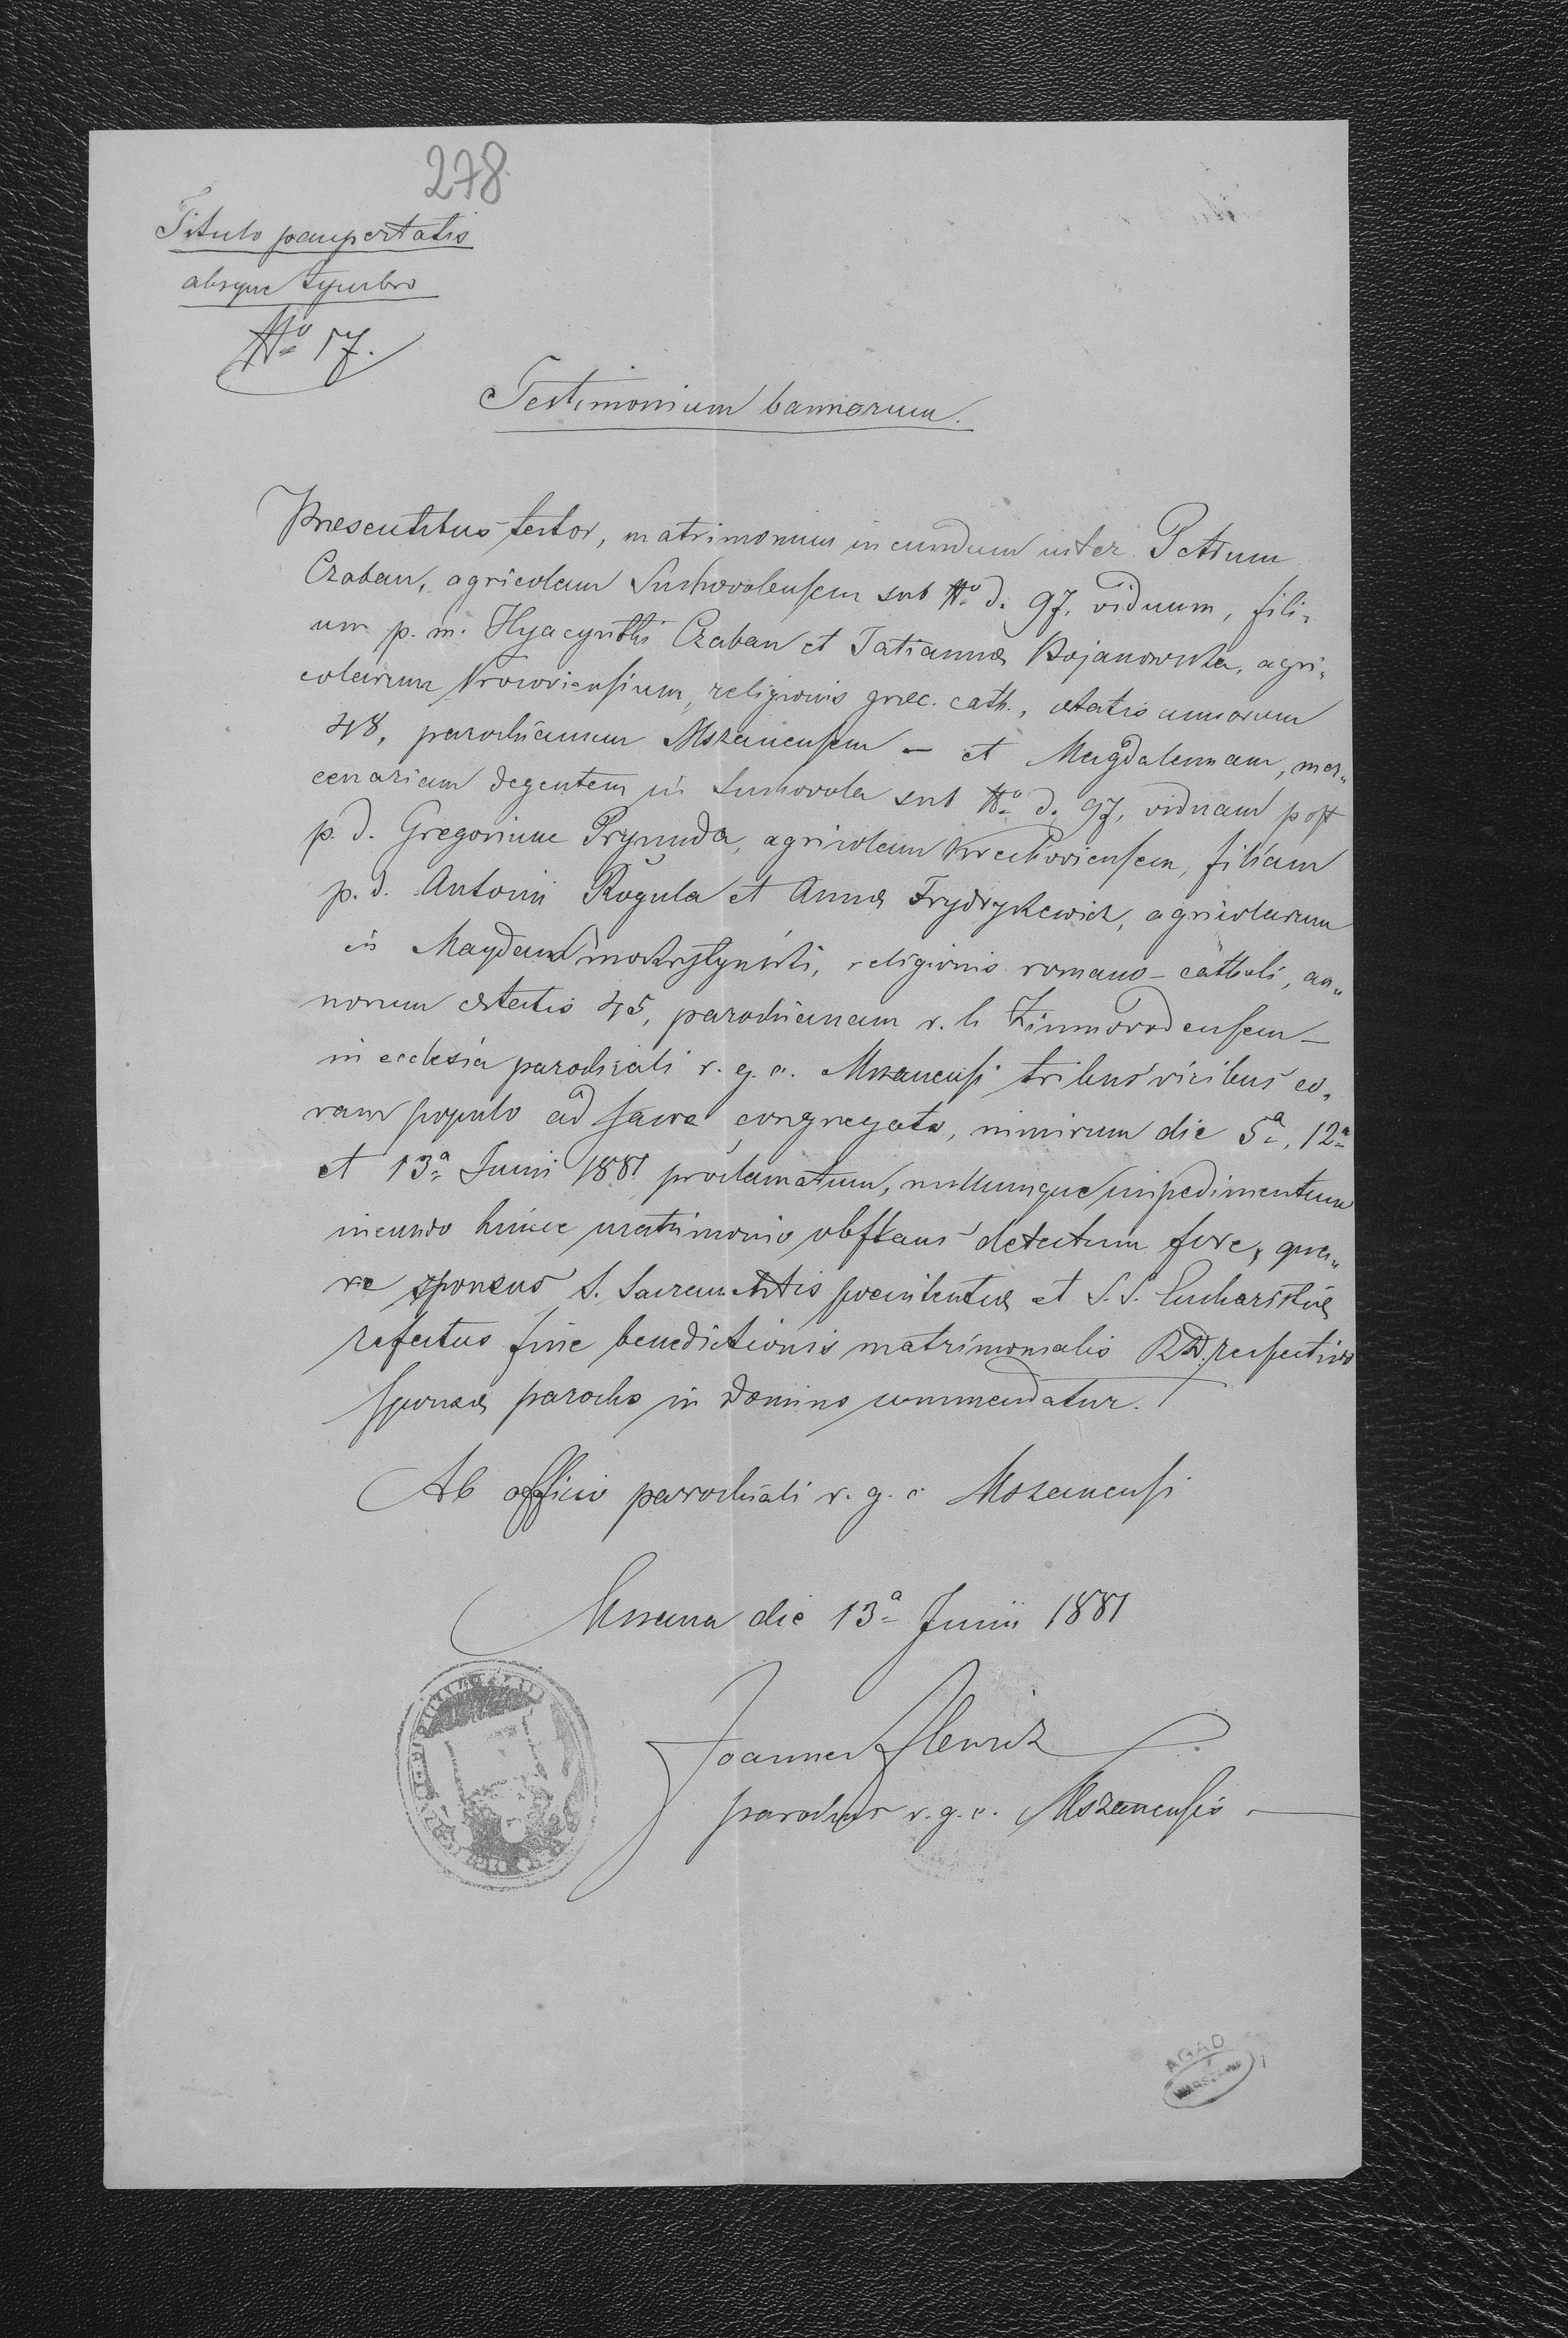 278
Titulo paupertatis
absque tymbro
No 17.
Testimonium bannorum.
Presentibus testor, matrimonium ineundum inter Petrum
Czaban, agricolam Suchowolensem sub No d. 97, viduum, fili-
um p. m. Hyacynthi Czaban et Tatiannæ Bojanowska, agri-
colarum Wrowiensium, religionis græc. cath., ætatis annorum
48, parochianum Mszanensem — et Magdalennam, mer-
cenariam degentem in Suchowola sub No d. 97, viduam post
p. d. Gregorium Prymuda, agricolam Krechoviensem, filiam
p. d. Antonii Rogula et Annæ Frydrykewicz, agricolarum
in Maydan mokrzÿtynski, religionis romano-catholi, an-
norum ætatis 45, parochianam r. l. Zimnowodensem —
in ecclesia parochiali r. g. c. Mszanensi tribus vicibus co-
ram populo ad sacra congregato, nimirum die 5a, 12a
et 13a Junii 1881 proclamatum, nullumque impedimentum
ineundo huice matrimonio obstans detectum fore, qua-
re sponsus S. Sacramentis poenitentiæ et S.S. Eucharistiæ
refectus fine benedictionis matrimonialis RD. respectivo
sponsæ parocho in Domino commendatur.
Ab officio parochiali r. g. c. Mszanensi
Mszana die 13a Junii 1881
Joannes
parochus r. g. c. Mszanensis
AGAD
WARSZAWA